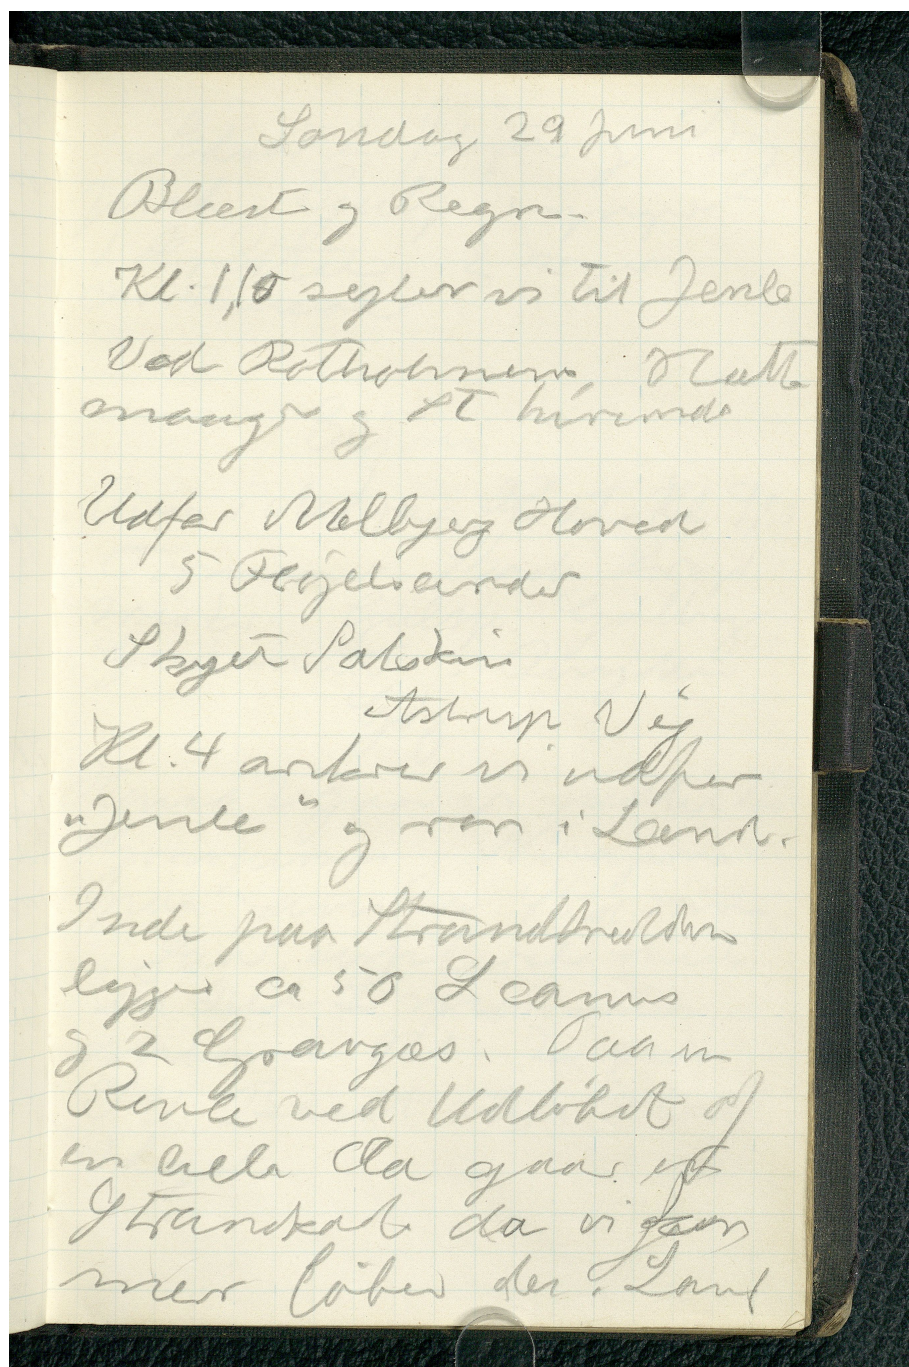 Søndag 29 Juni
Blæst og Regn.
Kl. 1,10 sejler vi til Jenle
Ved Rotholmene, Hætte
maager og St hirundo
Udfor Melbjerg Hoved
5 Fløjelsænder
Skyet Solskin
Astrup Vig
Kl. 4 ankrer vi udfor
"Jenle" og ror i Land.
Inde paa Strandbredden
ligger ca 50 L canus
og 2 Gravgæs. Paa en
Revle ved Udløbet af
en lille Aa gaar et
Strandskade da vi kom
mer løber den i Land